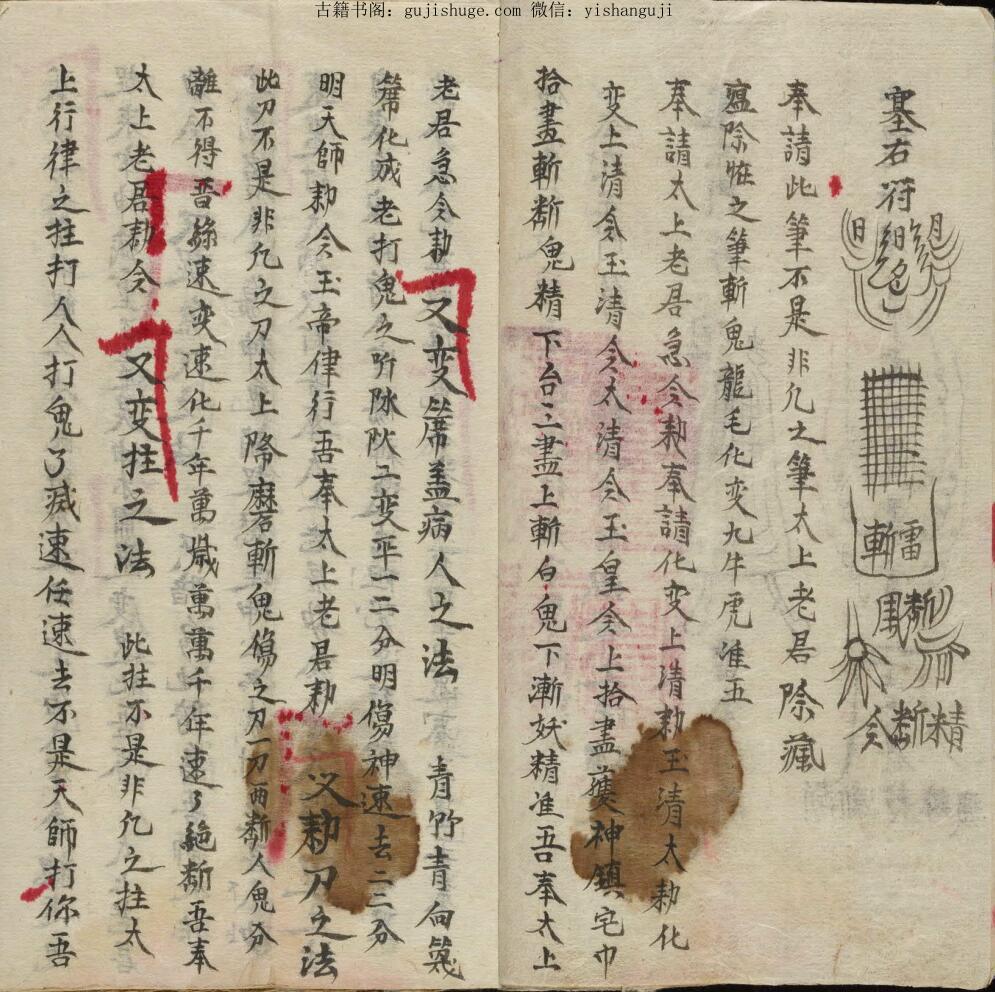 古籍书阁：gujishuge.com 微信：yishanguji
塞右符
日 月
雷斬
斬
精斬令
奉請此筆不是非凢之筆太上老君除瘋
瘟除恠之筆斬鬼龍毛化变九牛虎准五
奉請太上老君急令勅奉請化变上清勅玉清太勅化
变上清令玉清令太清令玉皇令上拾盡神鎮宅巾
拾畫斬斷鬼精下台三盡上斬白鬼下漸妖精准吾奉太上
老君急令勅 又变蓆盖病人之法 青竹青向篾
蓆化成老打鬼之 变平一二分明傷神速去二二分
明天師勅令玉帝律行吾奉太上老君勅 又勅刀之法
此刀不是非凢之刀太上降磨斬鬼傷之刀一刀两斷人鬼分
離不得速变速化千年萬歲萬萬千年速了絶斷吾奉
太上老君勅令 又变拄之法 此拄不是非凢之拄太
上行律之拄打人人打鬼了滅速任速去不是天師打你吾